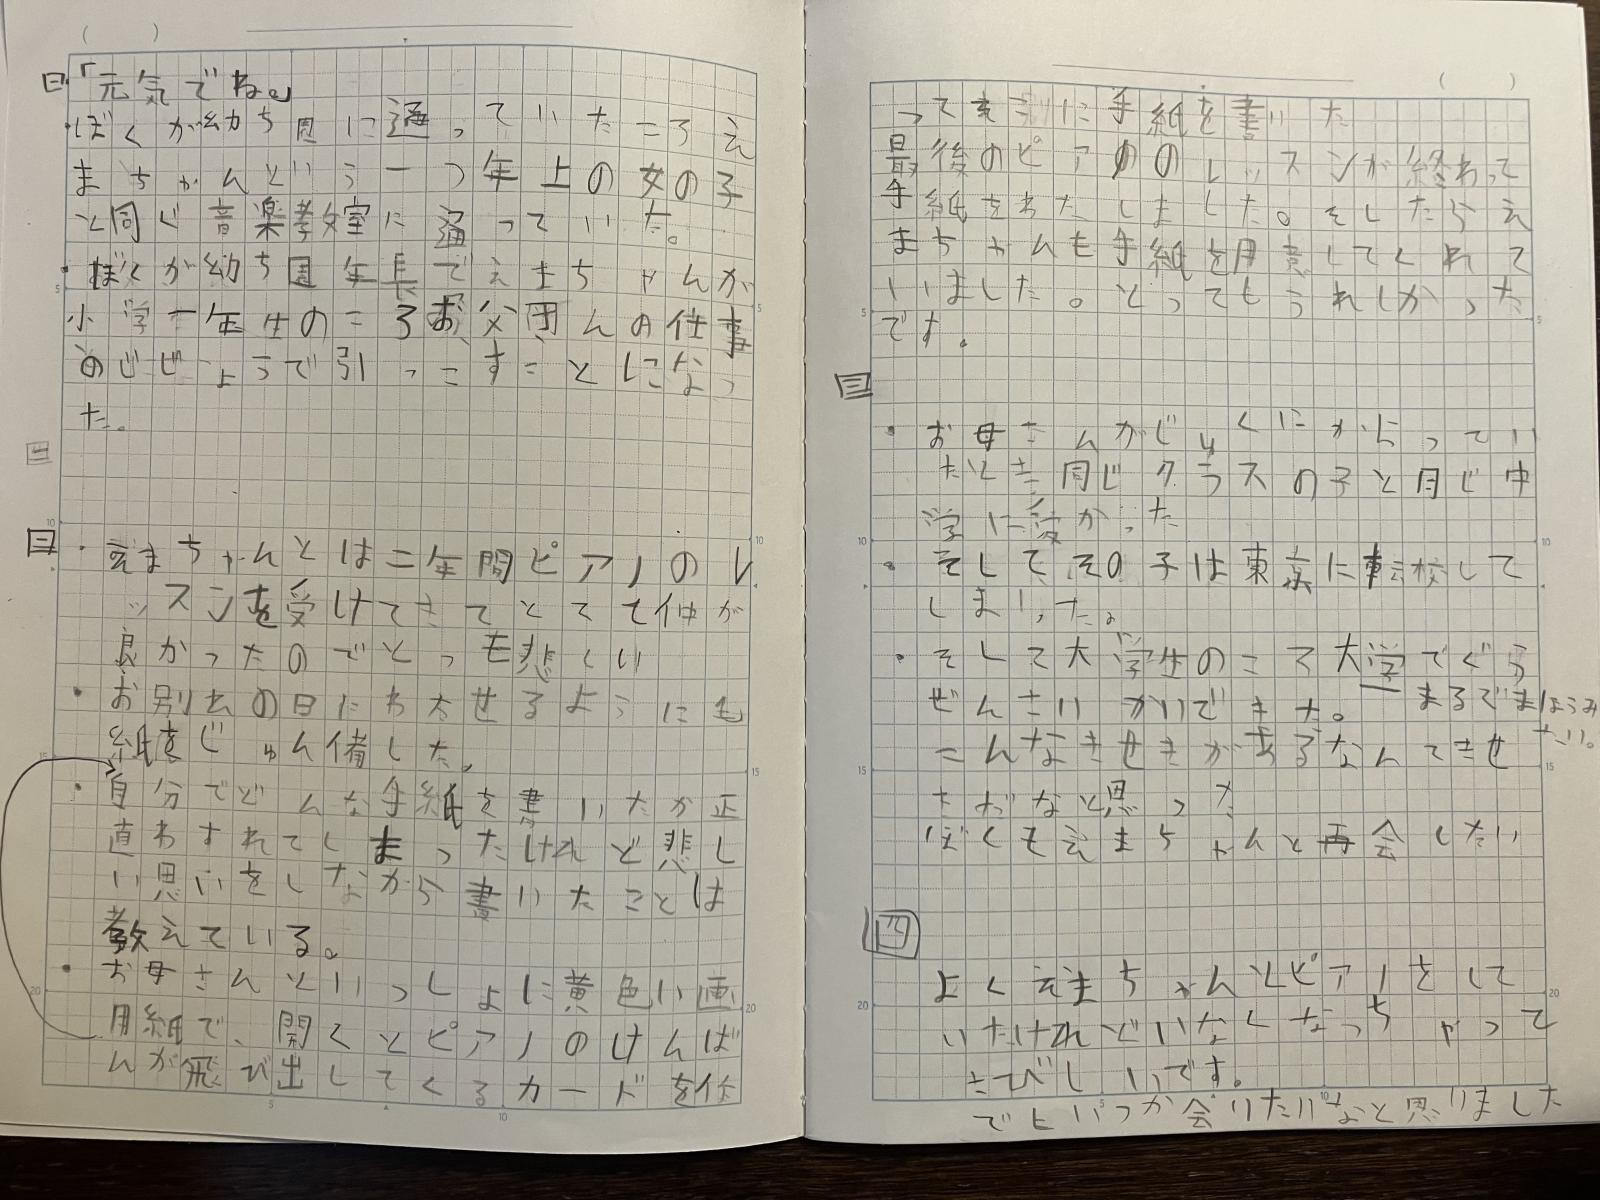 一「元気でね。」
・ぼくが幼ち園に通っていたころえ
まちゃんという一つ年上の女の子
と同じ音楽教室に通っていた。
・ぼくが幼ち園年長でえまちゃんが
小学一年生のころお父さんの仕事
のじじょうで引っこすことになっ
た。
二
二・えまちゃんとは二年間ピアノのレ
ッスンを受けてきてとてて仲が
良かったのでとっても悲しい
・お別れの日にわたせるように手
紙をじゅん備した。
・自分でどんな手紙を書いたか正
直わすれてしまったけれど悲し
い思いをしながら書いたことは
教えている。
・お母さんといっしょに黄色い画
用紙で、開くとピアノのけんば
んが飛び出してくるカードを作
って に手紙を書いた
最後のピアノのレッスンが終わって
手紙をわたしました。そしたらえ
まちゃんも手紙を用意してくれて
いました。とってもうれしかった
です。
三
・お母さんがじゅくにかよってい
たとき同じクラスの子と同じ中
学に受かった
・そしてその子は東京に転校して
しまいった。
・そして大学生のころ大学でぐう
ぜんさいかいできた。まるでまほうみ
たい。
こんなきせきがあるなんてきせ
きだなと思った
ぼくもえまちゃんと再会したい
四
よくえまちゃんとピアノをして
いたけれどいなくなっちゃって
さびしいです。
でもいつか会いたいなと思いました